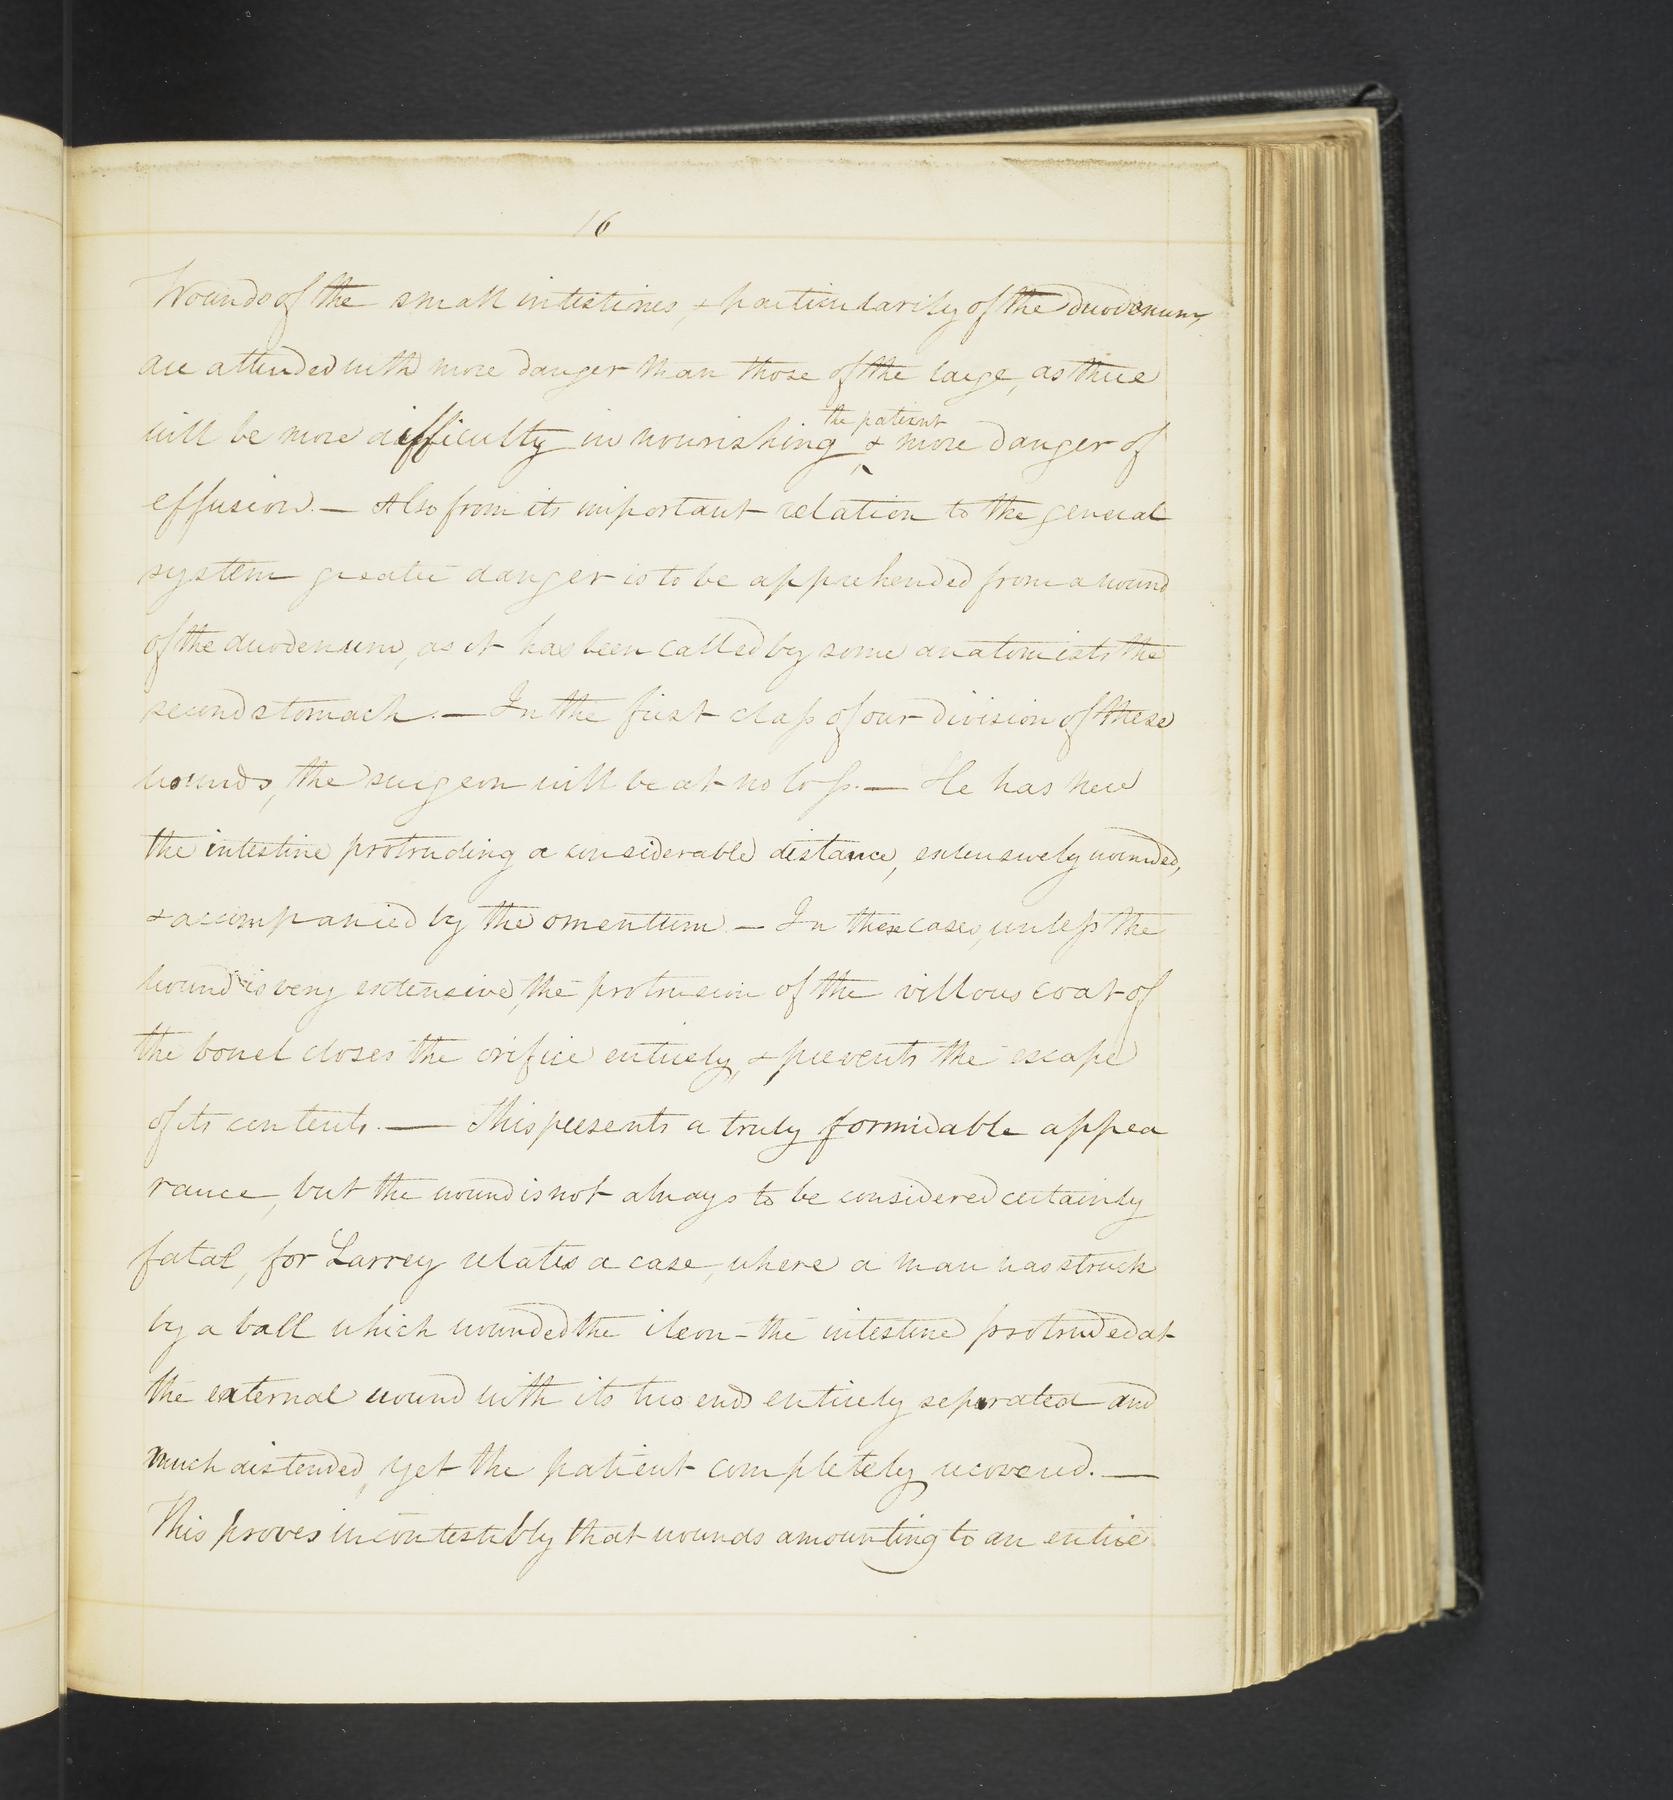 16
Wounds of the small intestines, & particularily of the duodenum,
are attended with more danger than those of the large, as there
will be more difficulty in nourishing the patient & more danger of
effusion. — Also from its important relation to the general
system greater danger is to be apprehended from a wound
of the duodenum, as it has been called by some anatomists the
second stomach. — In the first class of our division of these
wounds, the surgeon will be at no loss. — He has here
the intestine protruding a considerable distance, extensively wounded,
& accompanied by the omentum — In these cases, unless the
wound is very extensive, the protrusion of the villous coat of
the bowel closes the orifice entirely, & prevents the escape
of its contents. — This presents a truly formidable appea
rance, but the wound is not always to be considered certainly
fatal, for Larrey relates a case, where a man was struck
by a ball which wounded the ileon - the intestine protruded at
the external wound with its two ends entirely seperated and
much distended, yet the patient completely recovered. —
This proves incontestibly that wounds amounting to an entire